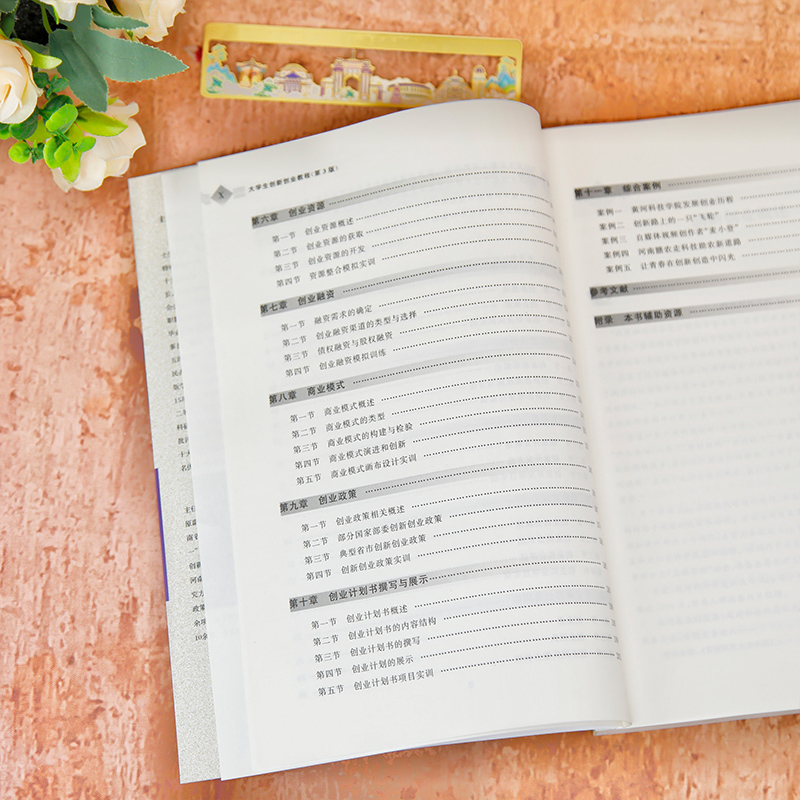 X 大学生创新创业教程(第3版)
第六章 创业资源
第一节 创业资源概述
第二节 创业资源的获取
第三节 创业资源的开发
第四节 资源整合模拟实训
第七章 创业融资
第一节 融资需求的确定
第二节 创业融资渠道的类型与选择
第三节 债权融资与股权融资
第四节 创业融资模拟训练
第八章 商业模式
第一节 商业模式概述
第二节 商业模式的类型
第三节 商业模式的构建与检验
第四节 商业模式演进和创新
第五节 商业模式画布设计实训
第九章 创业政策
第一节 创业政策相关概述
第二节 部分国家部委创新创业政策
第三节 典型省市创新创业政策
第四节 创新创业政策实训
第十章 创业计划书撰写与展示
第一节 创业计划书概述
第二节 创业计划书的内容结构
第三节 创业计划书的撰写
第四节 创业计划的展示
第五节 创业计划书项目实训
第十一章 综合案例
案例一 黄河科技学院发展创业历程
案例二 创新路上的一只“飞轮”
案例三 自媒体视频创作者“麦小登”
案例四 河南膳农走科技助农新道路
案例五 让青春在创新创造中闪光
参考文献
附录 本书辅助资源